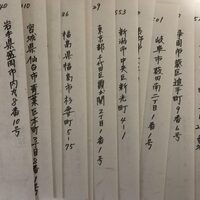 7
静岡市葵区追手町9番6号
01
岐阜市薮田南2丁目1番1号
553
新潟市中央区新光町4-1
29
東京都千代田区霞が関2丁目1番1号
26
福島県福島市杉妻町5-75
宮城県仙台市青葉区本町3丁目8番1号
40
岩手県盛岡市内丸8番10号